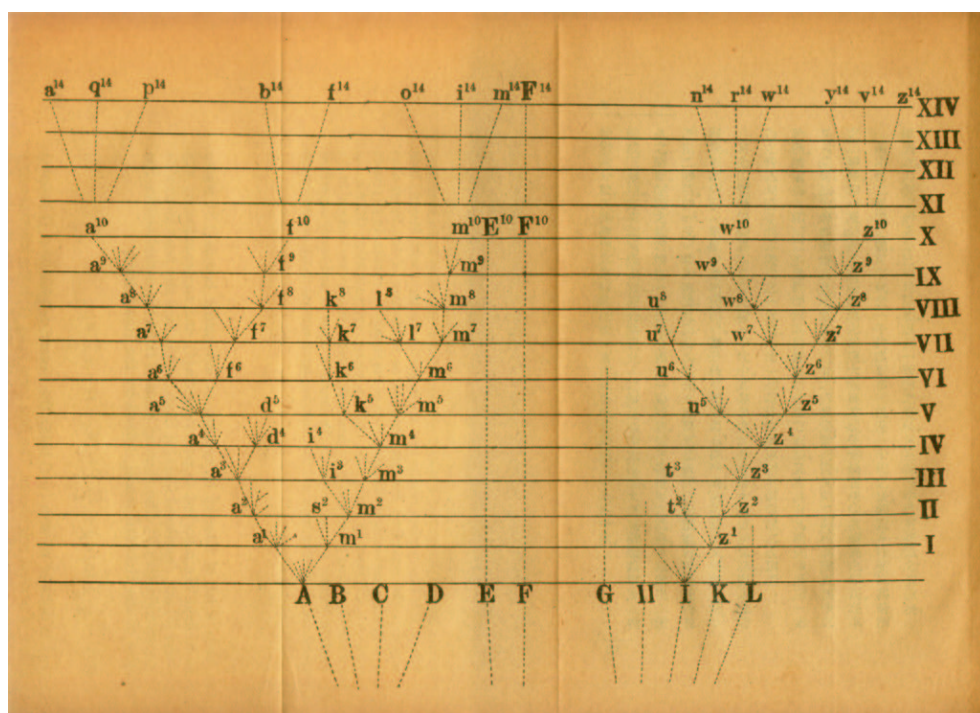 a¹⁴ q¹⁴ p¹⁴ b¹⁴ f¹⁴ o¹⁴ i¹⁴ m¹⁴ F¹⁴ n¹⁴ r¹⁴ w¹⁴ y¹⁴ v¹⁴ z¹⁴
XIV
XIII
XII
XI
a¹⁰ f¹⁰ m¹⁰ E¹⁰ F¹⁰ w¹⁰ z¹⁰ X
a⁹ f⁹ m⁹ w⁹ z⁹ IX
a⁸ f⁸ k⁸ l⁸ m⁸ u⁸ w⁸ z⁸ VIII
a⁷ f⁷ k⁷ l⁷ m⁷ u⁷ w⁷ z⁷ VII
a⁶ f⁶ k⁶ m⁶ u⁶ z⁶ VI
a⁵ d⁵ k⁵ m⁵ u⁵ z⁵ V
a⁴ d⁴ i⁴ m⁴ z⁴ IV
a³ i³ m³ t³ z³ III
a² s² m² t² z² II
a¹ m¹ z¹ I
A B C D E F G H I K L